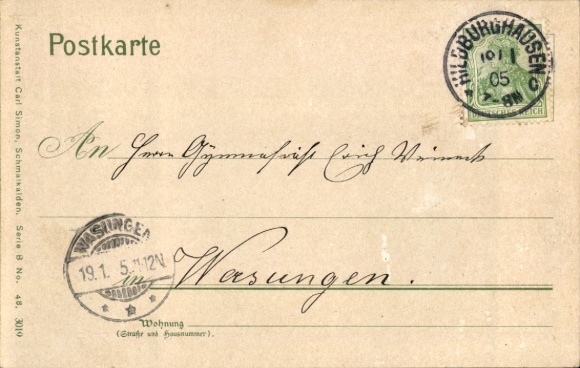 Postkarte
HILDBURGHAUSEN
05
7-8N
DEUTSCHES REICH
An Herrn Gymnasiast Erich Weineck
WASUNGEN
19.1. 5. 11-12V.
in Wasungen.
Wohnung
(Straße und Hausnummer).
Kunstanstalt Carl Simon, Schmalkalden. Serie B No. 48. 3010